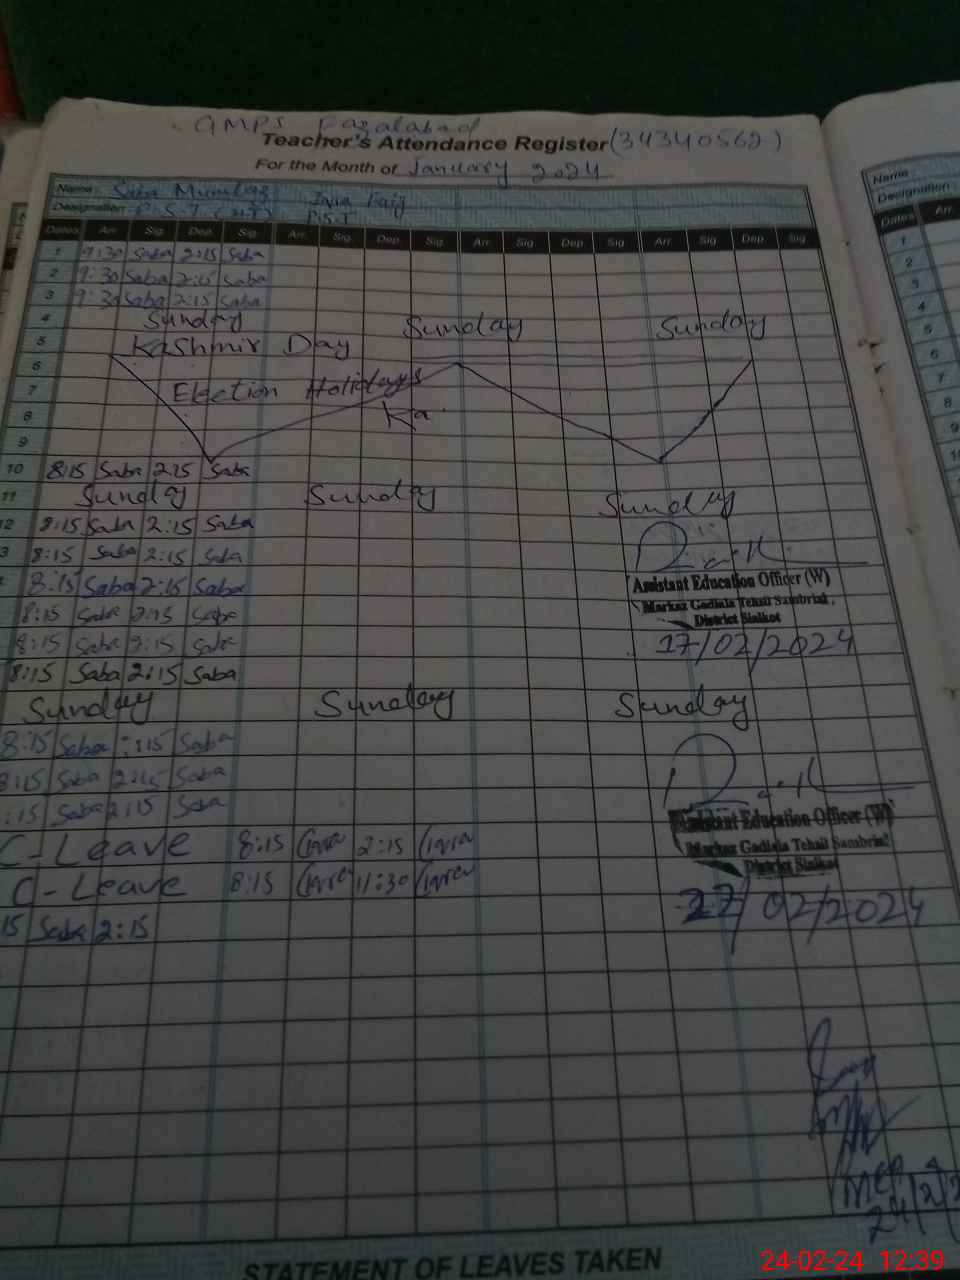 GMPS Fazalabad
Teacher's Attendance Register (34340562)
For the Month of January 2024
Name Saba Mumtaz
Designation P.S.T (H.T) P.S.T
Dates Arr. Sig. Dep. Sig. Arr. Sig. Dep. Sig. Arr. Sig. Dep. Sig. Arr. Sig. Dep. Sig.
1 9:30 Saba 2:15 Saba
2 9:30 Saba 2:15 Saba
3 9:30 Saba 2:15 Saba
4 Sunday Sunday Sunday
5 Kashmir Day
6
7 Election Holidays
8 Ka
9
10 8:15 Saba 2:15 Saba
11 Sunday Sunday Sunday
12 8:15 Saba 2:15 Saba
3 8:15 Saba 2:15 Saba
8:15 Saba 2:15 Saba
Assistant Education Officer (W)
8:15 Saba 2:15 Saba
Markaz Gadiala Tehsil Sambrial,
District Sialkot
8:15 Saba 2:15 Saba
17/02/2024
8:15 Saba 2:15 Saba
Sunday Sunday Sunday
8:15 Saba :15 Saba
8:15 Saba 2:15 Saba
:15 Saba 2:15 Saba
Assistant Education Officer (W)
C-Leave 8:15 2:15
Markaz Gadiala Tehsil Sambrial
District Sialkot
C-Leave 8:15 11:30
15 Saba 2:15
27/02/2024
24/2/2
STATEMENT OF LEAVES TAKEN
24-02-24 12:39
Name
Designation
Dates Arr
1
2
3
4
5
6
7
8
9